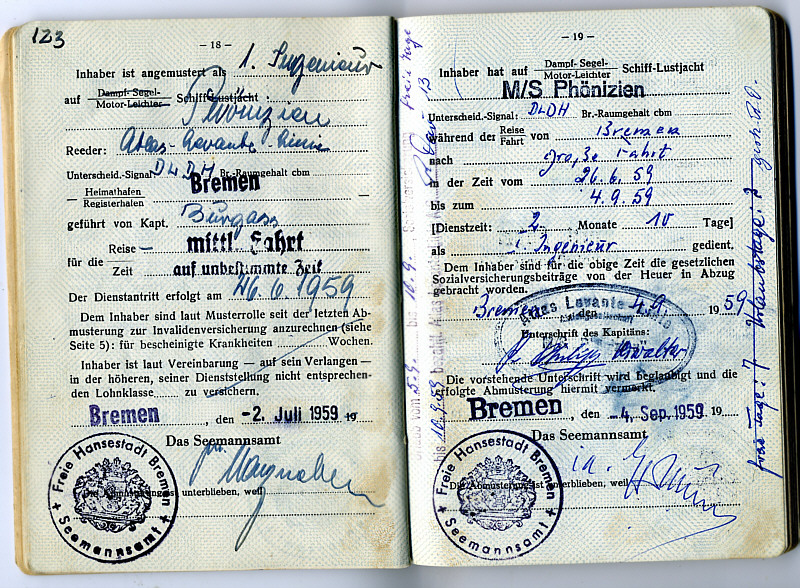 123
– 18 –
Inhaber ist angemustert als 1. Ingenieur
auf Dampf- Segel- Motor-Leichter Schiff-Lustjacht :
Phönizien
Reeder: Atlas-Levante-Linie
Unterscheid.-Signal DLDH Br.-Raumgehalt cbm
Heimathafen Registerhafen Bremen
geführt von Kapt. Burgass
für die Reise – Zeit mittl. Fahrt
auf unbestimmte Zeit
Der Dienstantritt erfolgt am 26.6.1959
Dem Inhaber sind laut Musterrolle seit der letzten Ab-
musterung zur Invalidenversicherung anzurechnen (siehe
Seite 5): für bescheinigte Krankheiten Wochen.
Inhaber ist laut Vereinbarung — auf sein Verlangen —
in der höheren, seiner Dienststellung nicht entsprechen-
den Lohnklasse zu versichern.
Bremen, den -2. Juli 1959 19
Das Seemannsamt
Die Abmusterung ist unterblieben, weil
Freie Hansestadt Bremen
Seemannsamt
– 19 –
Inhaber hat auf Dampf- Segel- Motor-Leichter Schiff-Lustjacht
M/S Phönizien
Unterscheid.-Signal: DLDH Br.-Raumgehalt cbm
während der Reise Fahrt von Bremen
nach große Fahrt
in der Zeit vom 26.6.59
bis zum 4.9.59
[Dienstzeit: 2 Monate 10 Tage]
als 1. Ingenieur gedient.
Dem Inhaber sind für die obige Zeit die gesetzlichen
Sozialversicherungsbeiträge von der Heuer in Abzug
gebracht worden.
Bremen, den 4.9. 1959
Atlas Levante Linie
Unterschrift des Kapitäns:
Die vorstehende Unterschrift wird beglaubigt und die
erfolgte Abmusterung hiermit vermerkt.
Bremen, den -4. Sep. 1959 19
Das Seemannsamt
i.a.
Die Abmusterung ist unterblieben, weil
Freie Hansestadt Bremen
Seemannsamt
freie Tage: 7 Urlaubstage: 3
freie Tage
13